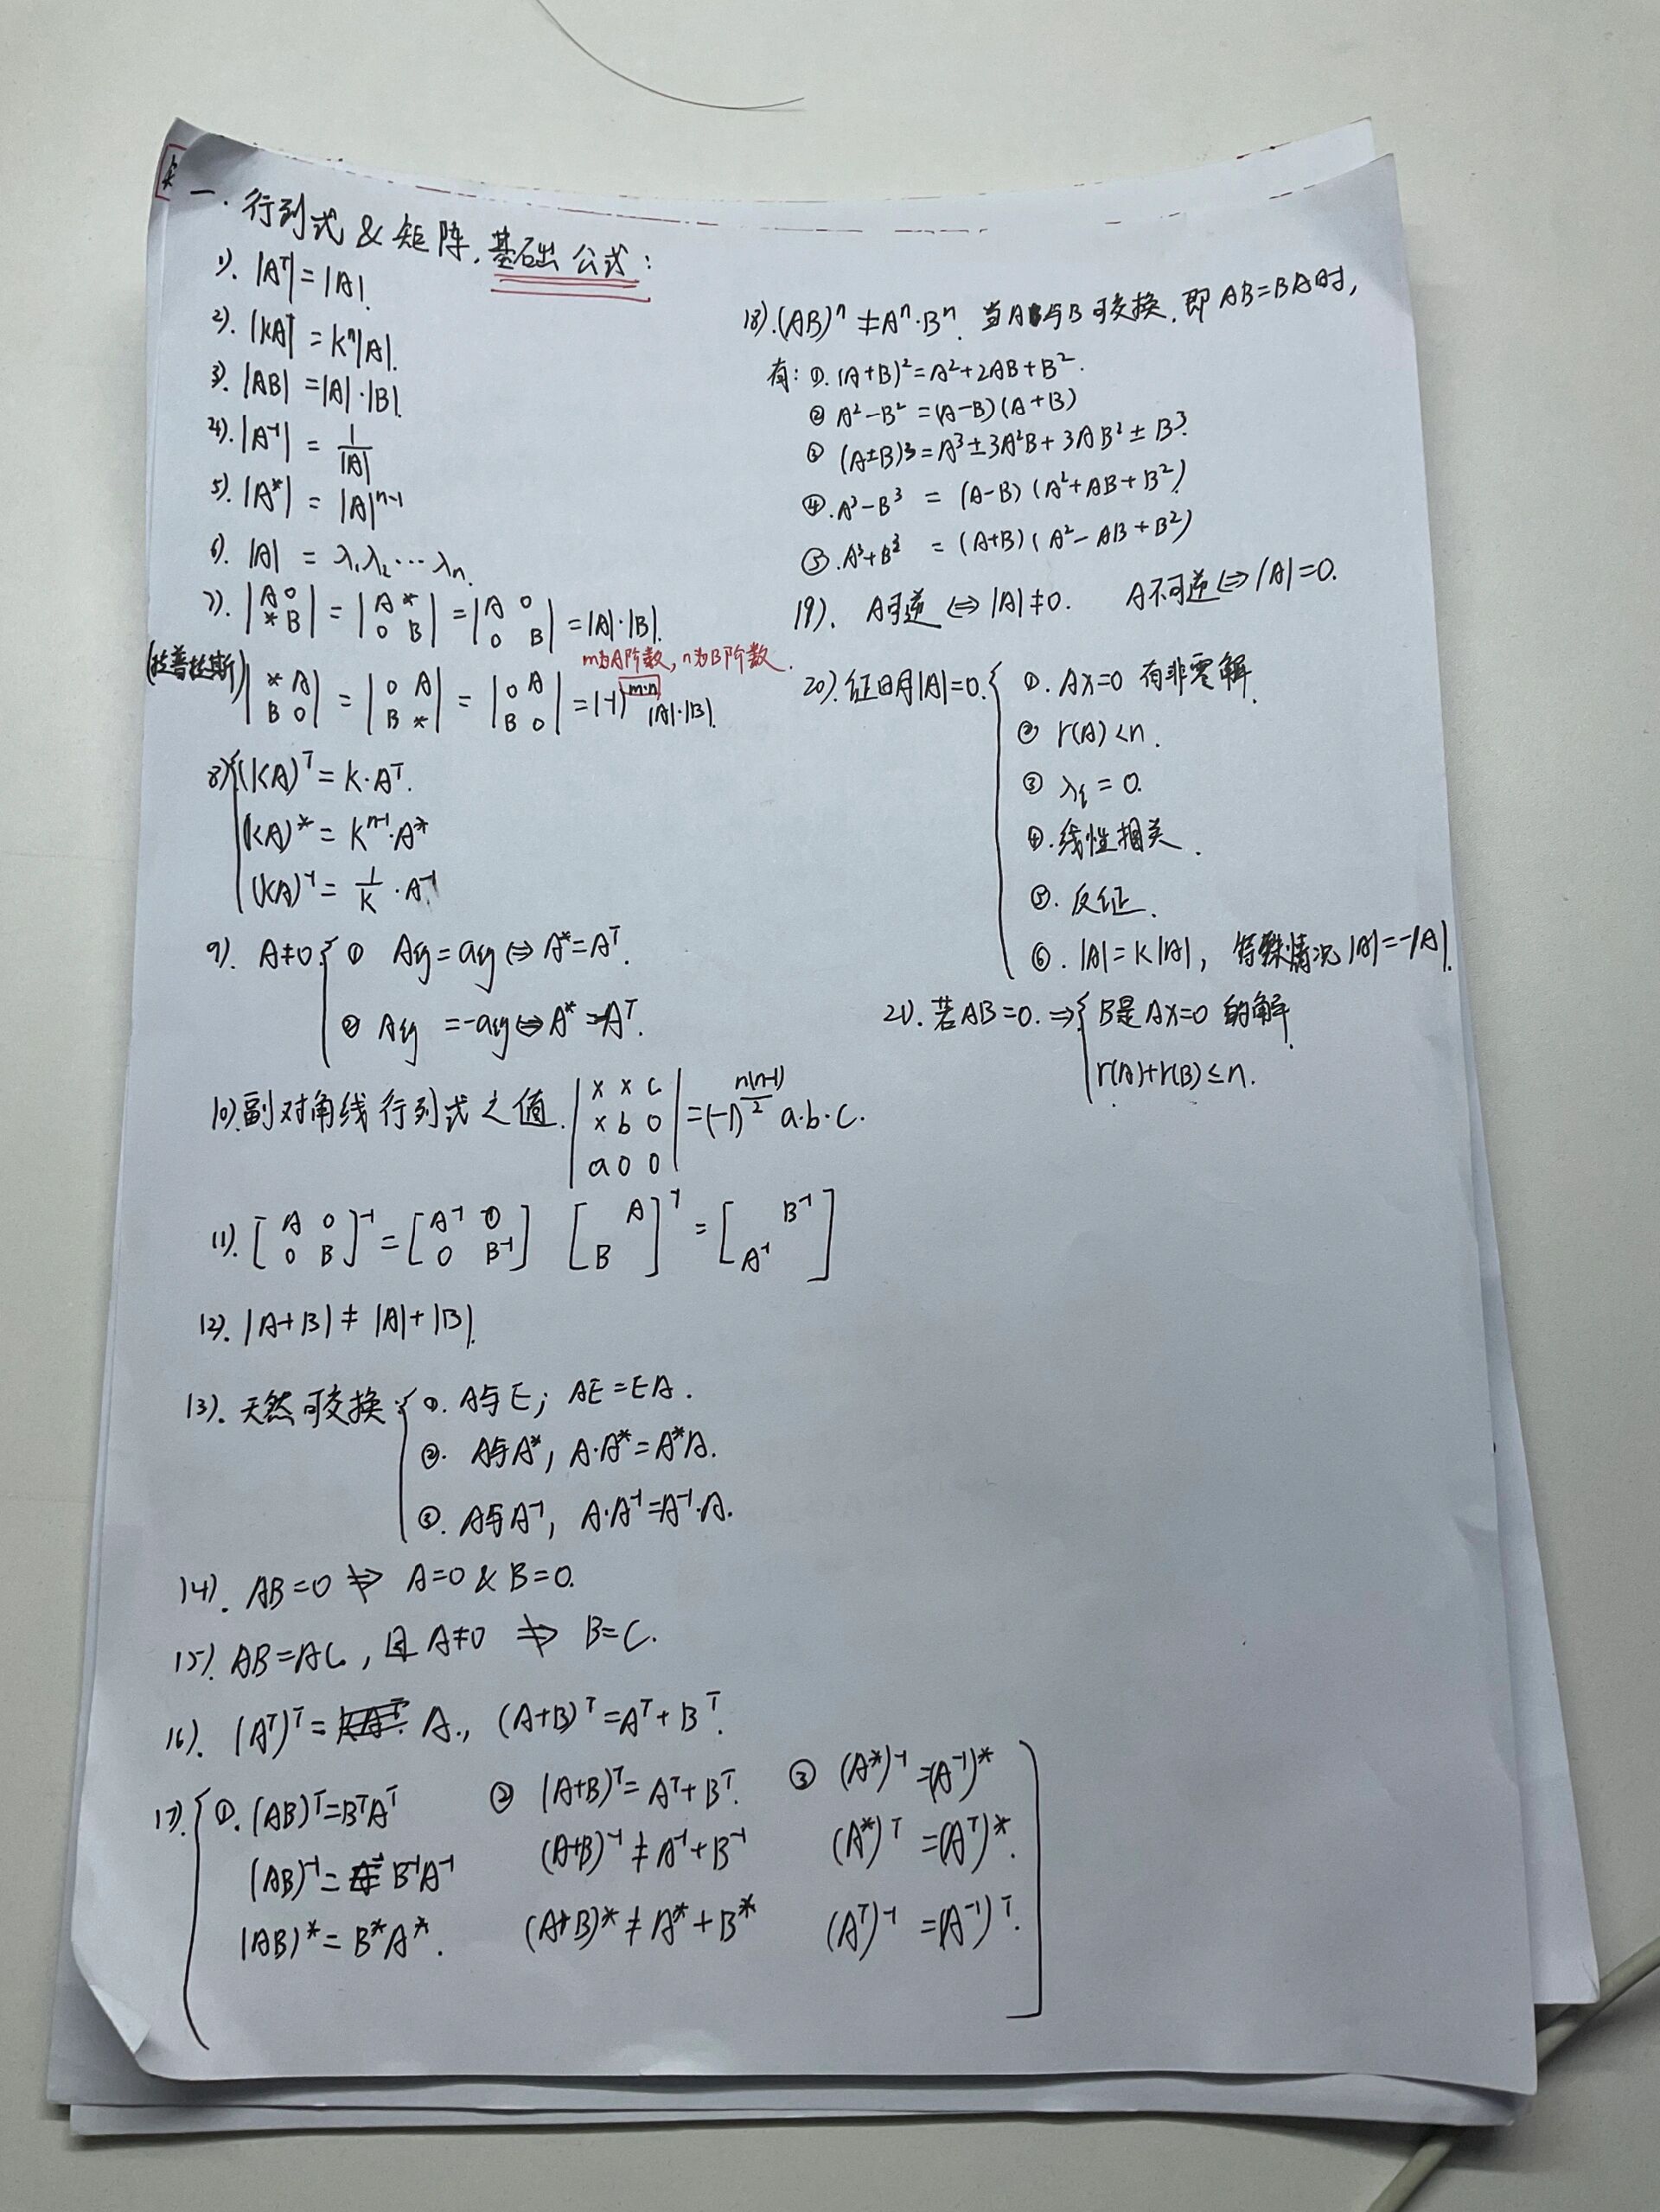 一. 行列式 & 矩阵. 基础公式:
1). |Aᵀ| = |A|.
2). |kA| = kⁿ|A|.
3). |AB| = |A|·|B|.
4). |A⁻¹| = 1/|A|
5). |A*| = |A|ⁿ⁻¹
6). |A| = λ₁λ₂⋯λₙ.
7). |A 0; * B| = |A *; 0 B| = |A 0; 0 B| = |A|·|B|.
m为A阶数, n为B阶数.
(拉普拉斯) |* A; B 0| = |0 A; B *| = |0 A; B 0| = (-1)^(m·n) |A|·|B|.
8) { (kA)ᵀ = k·Aᵀ.
(kA)* = kⁿ⁻¹·A*
(kA)⁻¹ = 1/k · A⁻¹
9). A≠0. { ① Aij = aij ⇔ A* = Aᵀ.
② Aij = -aij ⇔ A* = -Aᵀ.
10). 副对角线行列式之值. |x x c; x b 0; a 0 0| = (-1)^(n(n-1)/2) a·b·c.
11). [A 0; 0 B]⁻¹ = [A⁻¹ 0; 0 B⁻¹] [ A; B ]⁻¹ = [ B⁻¹; A⁻¹ ]
12). |A+B| ≠ |A|+|B|.
13). 天然可交换 { ①. A与E; AE=EA.
②. A与A*, A·A* = A*A.
③. A与A⁻¹, A·A⁻¹=A⁻¹·A.
14). AB=0 ⇏ A=0 & B=0.
15). AB=AC, 且A≠0 ⇏ B=C.
16). (Aᵀ)ᵀ = A., (A+B)ᵀ = Aᵀ+Bᵀ.
17). { ①. (AB)ᵀ=BᵀAᵀ ② (A+B)ᵀ = Aᵀ+Bᵀ. ③ (A*)⁻¹ =(A⁻¹)*
(AB)⁻¹ = B⁻¹A⁻¹ (A+B)⁻¹ ≠ A⁻¹+B⁻¹ (A*)ᵀ =(Aᵀ)*.
(AB)* = B*A*. (A+B)* ≠ A*+B* (Aᵀ)⁻¹ =(A⁻¹)ᵀ.
18). (AB)ⁿ ≠ Aⁿ·Bⁿ. 当A与B可交换. 即AB=BA时,
有: ①. (A+B)² = A²+2AB+B².
② A²-B² = (A-B)(A+B)
③ (A±B)³ = A³±3A²B+3AB²±B³.
④. A³-B³ = (A-B)(A²+AB+B²)
⑤. A³+B³ = (A+B)(A²-AB+B²)
19). A可逆 ⇔ |A|≠0. A不可逆 ⇔ |A|=0.
20). 证明|A|=0. { ①. AX=0 有非零解.
② r(A)<n.
③ λi = 0.
④. 线性相关.
⑤. 反证.
⑥. |A| = k|A|, 特殊情况 |A| = -|A|.
21). 若AB=0. ⇒ { B是AX=0的解.
r(A)+r(B)≤n.